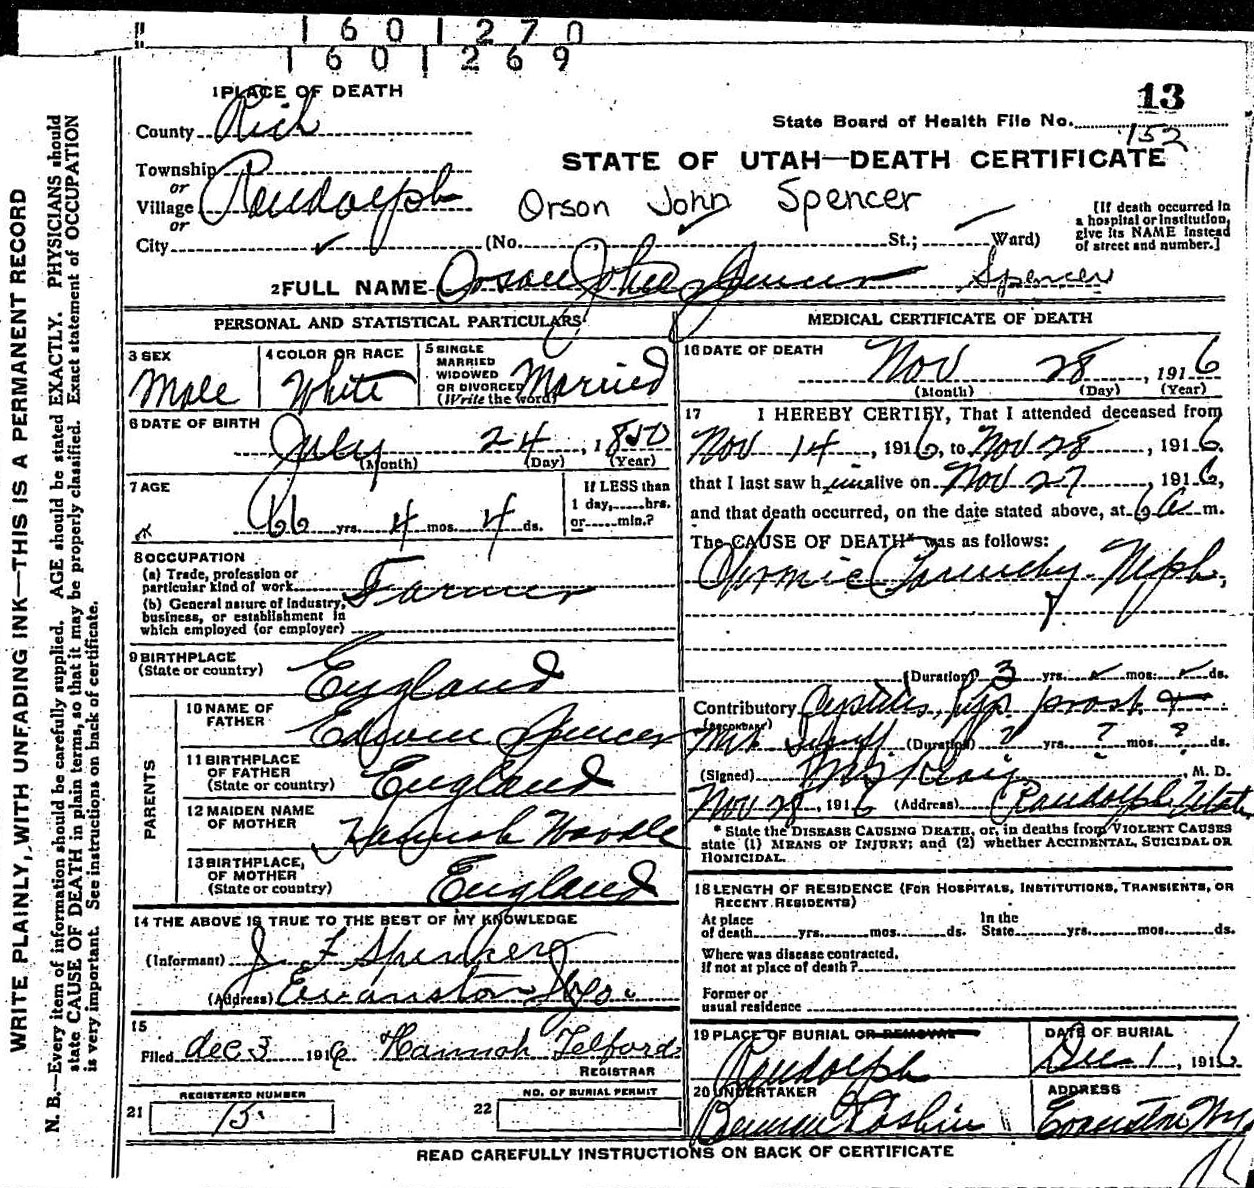 1601270
1601269
1 PLACE OF DEATH
13
County Rich
State Board of Health File No. 152
Township
or
Village Randolph
or
STATE OF UTAH—DEATH CERTIFICATE
Orson John Spencer
[If death occurred in
a hospital or institution,
give its NAME instead
of street and number.]
City (No. St.; Ward)
2 FULL NAME Orson John Spencer Spencer
PERSONAL AND STATISTICAL PARTICULARS
3 SEX
Male
4 COLOR OR RACE
White
5 SINGLE
MARRIED
WIDOWED
OR DIVORCED
(Write the word)
Married
6 DATE OF BIRTH
July 24, 1850
(Month) (Day) (Year)
7 AGE
66 yrs. 4 mos. 4 ds.
If LESS than
1 day, hrs.
or min.?
8 OCCUPATION
(a) Trade, profession or
particular kind of work Farmer
(b) General nature of industry,
business, or establishment in
which employed (or employer)
9 BIRTHPLACE
(State or country)
England
PARENTS
10 NAME OF
FATHER
Edwin Spencer
11 BIRTHPLACE
OF FATHER
(State or country)
England
12 MAIDEN NAME
OF MOTHER
Hannah
13 BIRTHPLACE,
OF MOTHER
(State or country)
England
14 THE ABOVE IS TRUE TO THE BEST OF MY KNOWLEDGE
(Informant) J. F.
(Address) Evanston Wyo.
15
Filed dec 3 1916 Hannah Telford
REGISTRAR
21
REGISTERED NUMBER
13.
22
NO. OF BURIAL PERMIT
MEDICAL CERTIFICATE OF DEATH
16 DATE OF DEATH
Nov 28, 1916
(Month) (Day) (Year)
17 I HEREBY CERTIFY, That I attended deceased from
Nov 14, 1916, to Nov 28, 1916,
that I last saw him alive on Nov 27, 1916,
and that death occurred, on the date stated above, at 6 a m.
The CAUSE OF DEATH* was as follows:
Chronic Neph,
(Duration) 3 yrs. mos. ds.
Contributory Cystitis, hyp prost
(SECONDARY)
(Duration) ? yrs. ? mos. ? ds.
(Signed) M.D.
Nov 28, 1916 (Address) Randolph Utah
* State the DISEASE CAUSING DEATH, or, in deaths from VIOLENT CAUSES
state (1) MEANS OF INJURY; and (2) whether ACCIDENTAL, SUICIDAL OR
HOMICIDAL.
18 LENGTH OF RESIDENCE (FOR HOSPITALS, INSTITUTIONS, TRANSIENTS, OR
RECENT RESIDENTS)
At place
of death yrs. mos. ds.
In the
State yrs. mos. ds.
Where was disease contracted,
if not at place of death?
Former or
usual residence
19 PLACE OF BURIAL OR REMOVAL
Randolph
DATE OF BURIAL
Dec 1, 1916
20 UNDERTAKER
ADDRESS
Evanston
READ CAREFULLY INSTRUCTIONS ON BACK OF CERTIFICATE
WRITE PLAINLY, WITH UNFADING INK—THIS IS A PERMANENT RECORD
N. B.—Every item of information should be carefully supplied. AGE should be stated EXACTLY. PHYSICIANS should
state CAUSE OF DEATH in plain terms, so that it may be properly classified. Exact statement of OCCUPATION
is very important. See instructions on back of certificate.